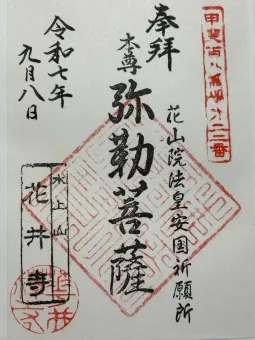 甲斐百八霊場九十二番
奉拝
花山院法皇安国祈願所
本尊
弥勒菩薩
令和七年
九月八日
水上山
花井寺